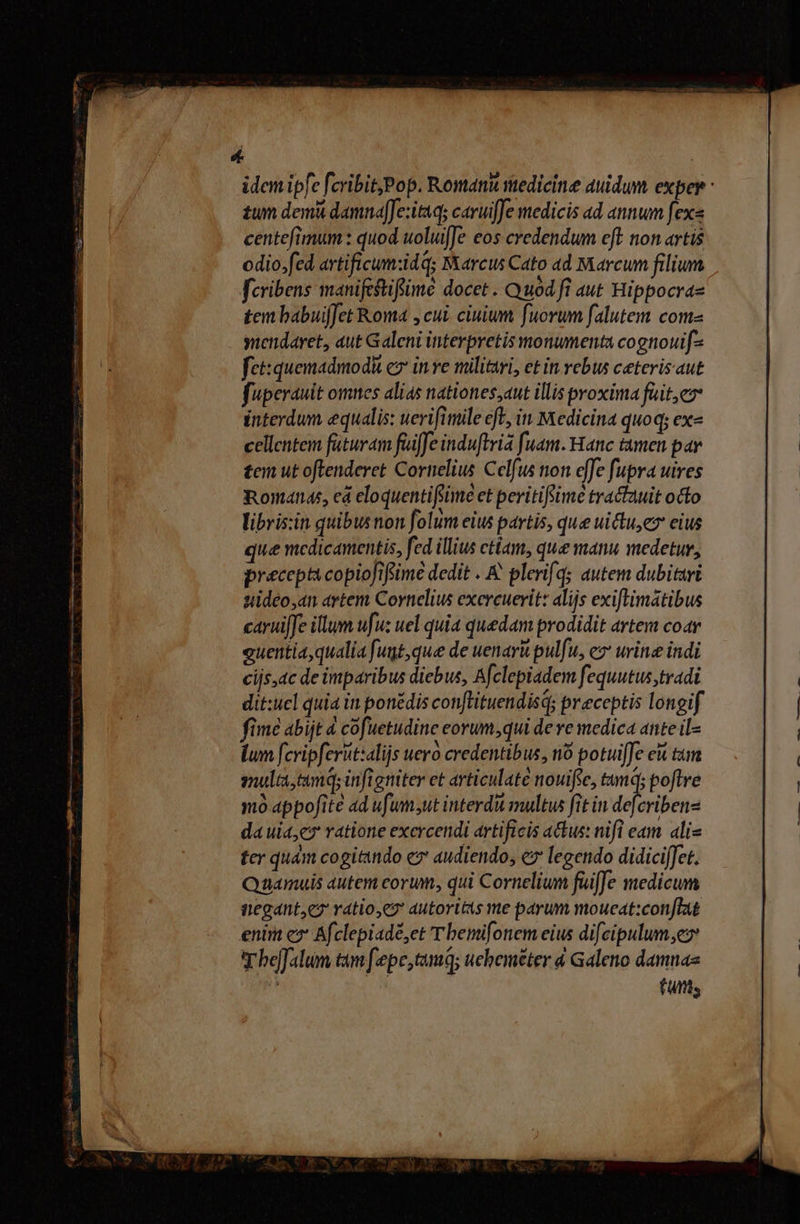 4
idem ipſe ſcribit, Pop. Romanũ medicinæ auidum exper
tum demũ damnaſſe: itaq; caruiſſe medicis ad annum ſex=
centeſimum: quod uoluiſſe eos credendum eſt non artis
odio, ſed artificum: idq́; Marcus Cato ad Marcum filium
ſcribens manifeſtiſsimè docet. Quòd ſi aut Hippocra=
tem habuiſſet Roma, cui ciuium ſuorum ſalutem com=
mendaret, aut Galeni interpretis monumenta cognouiſ=
ſet: quemadmodũ & in re militari, et in rebus cæteris aut
ſuperauit omnes alias nationes, aut illis proxima fuit, &
interdum æqualis: ueriſimile eſt, in Medicina quoq; ex=
cellentem futuram fuiſſe induſtriã ſuam. Hanc tamen par
tem ut oſtenderet Cornelius Celſus non eſſe ſupra uires
Romanas, eã eloquentiſsimè et peritiſsimè tractauit octo
libris: in quibus non ſolùm eius partis, quæ uictu, & eius
quæ medicamentis, ſed illius etiam, quæ manu medetur,
præcepta copioſiſsimè dedit. A' pleriſq; autem dubitari
uideo, an artem Cornelius exercuerit: alijs exiſtimãtibus
caruiſſe illum uſu: uel quia quædam prodidit artem coar
guentia, qualia ſunt, quæ de uenarũ pulſu, & urinæ indi
cijs, ac de imparibus diebus, Aſclepiadem ſequutus, tradi
dit: uel quia in ponẽdis conſtituendisq́; præceptis longiſ
ſimè abijt à cõſuetudine eorum, qui de re medica ante il=
lum ſcripſerũt: alijs uerò credentibus, nõ potuiſſe eũ tam
multa, tamq́; inſigniter et articulatè nouiſſe, tamq́; poſtre
mò appoſitè ad uſum, ut interdũ multus ſit in deſcriben=
da uia, & ratione exercendi artificis actus: niſi eam ali=
ter quàm cogitando & audiendo, & legendo didiciſſet.
Quamuis autem eorum, qui Cornelium fuiſſe medicum
negant, & ratio, & autoritas me parum moueat: conſtat
enim & Aſclepiadẽ, et Themiſonem eius diſcipulum, &
Theſſalum tam ſæpe, tamq́; uehemẽter à Galeno damna=
tum,